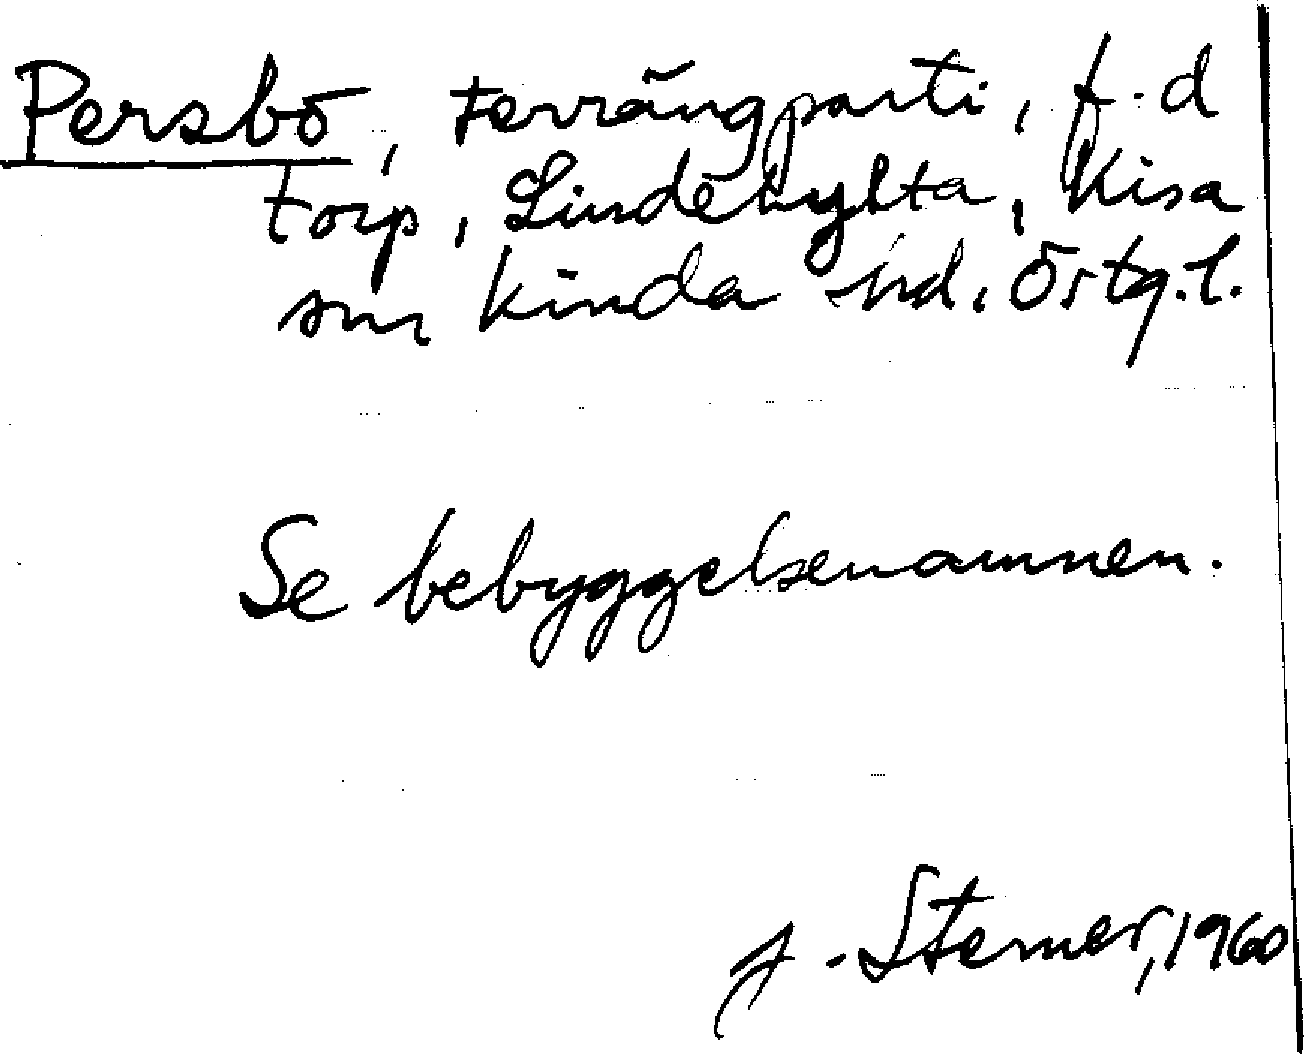 Persbo, terrängparti, f.d
torp, Lindekylta, Kisa
sn, Kinda hd. Östg.l.
Se bebyggelsenamnen.
J. Sterner, 1960